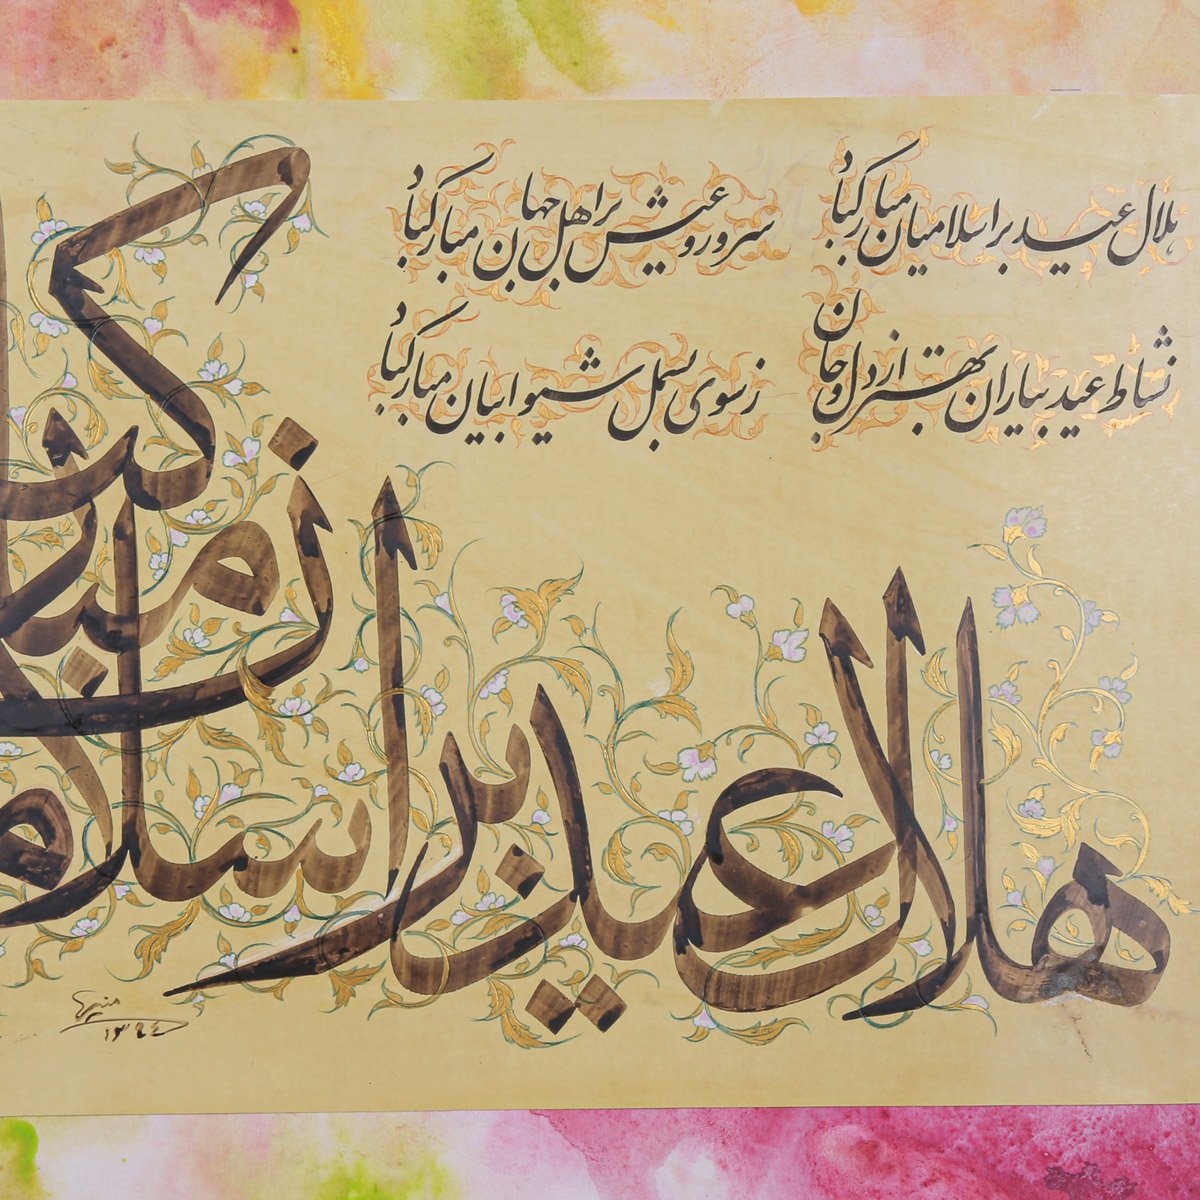 هلال عید بر اسلامیان مبارکباد
سرور و عیش بر اهل جهان مبارکباد
نشاط عید بیاران بهتر از دل و جان
ز سوی بسمل شیوابیان مبارکباد
هلال عید بر اسلامیان
۱۳۹٤